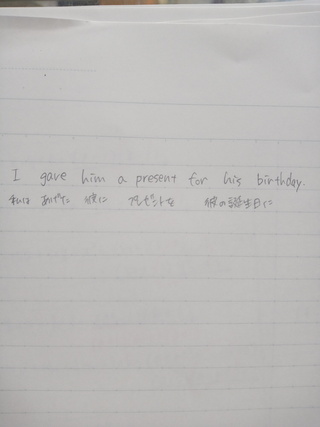 I gave him a present for his birthday.
私は あげた 彼に プレゼントを 彼の誕生日に